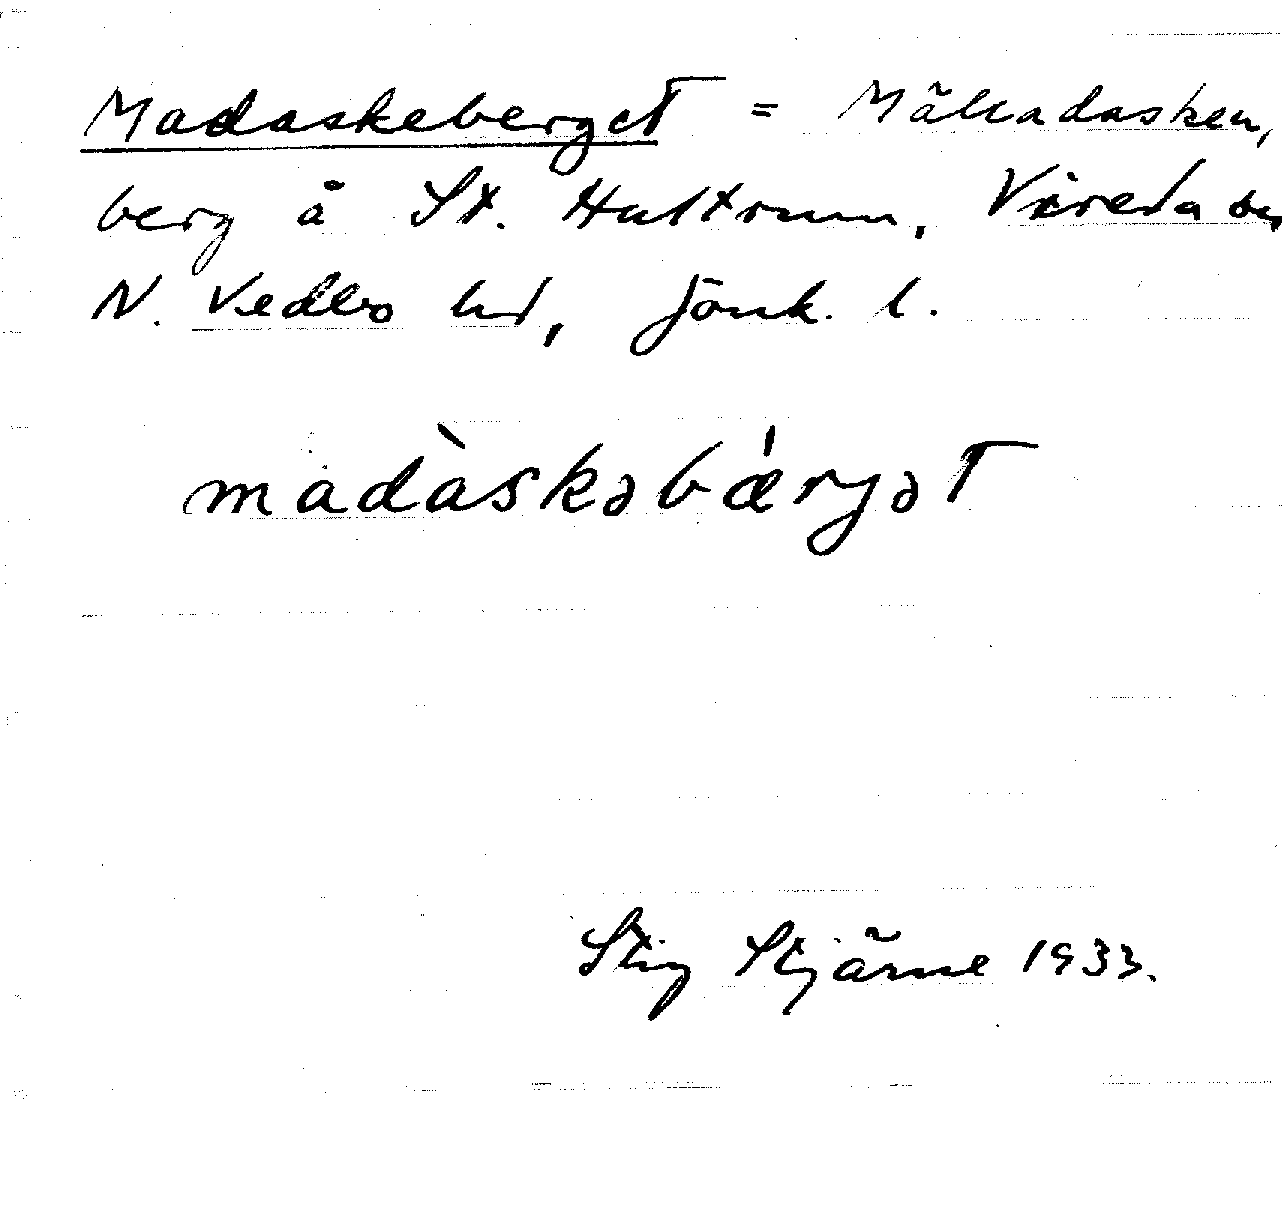 Madaskeberget = Mälladasken,
berg å St. Hultrum, Vireda sn,
N. Vedbo hd, Jönk. l.
madàskəbǽrgət
Stig Stjärne 1933.